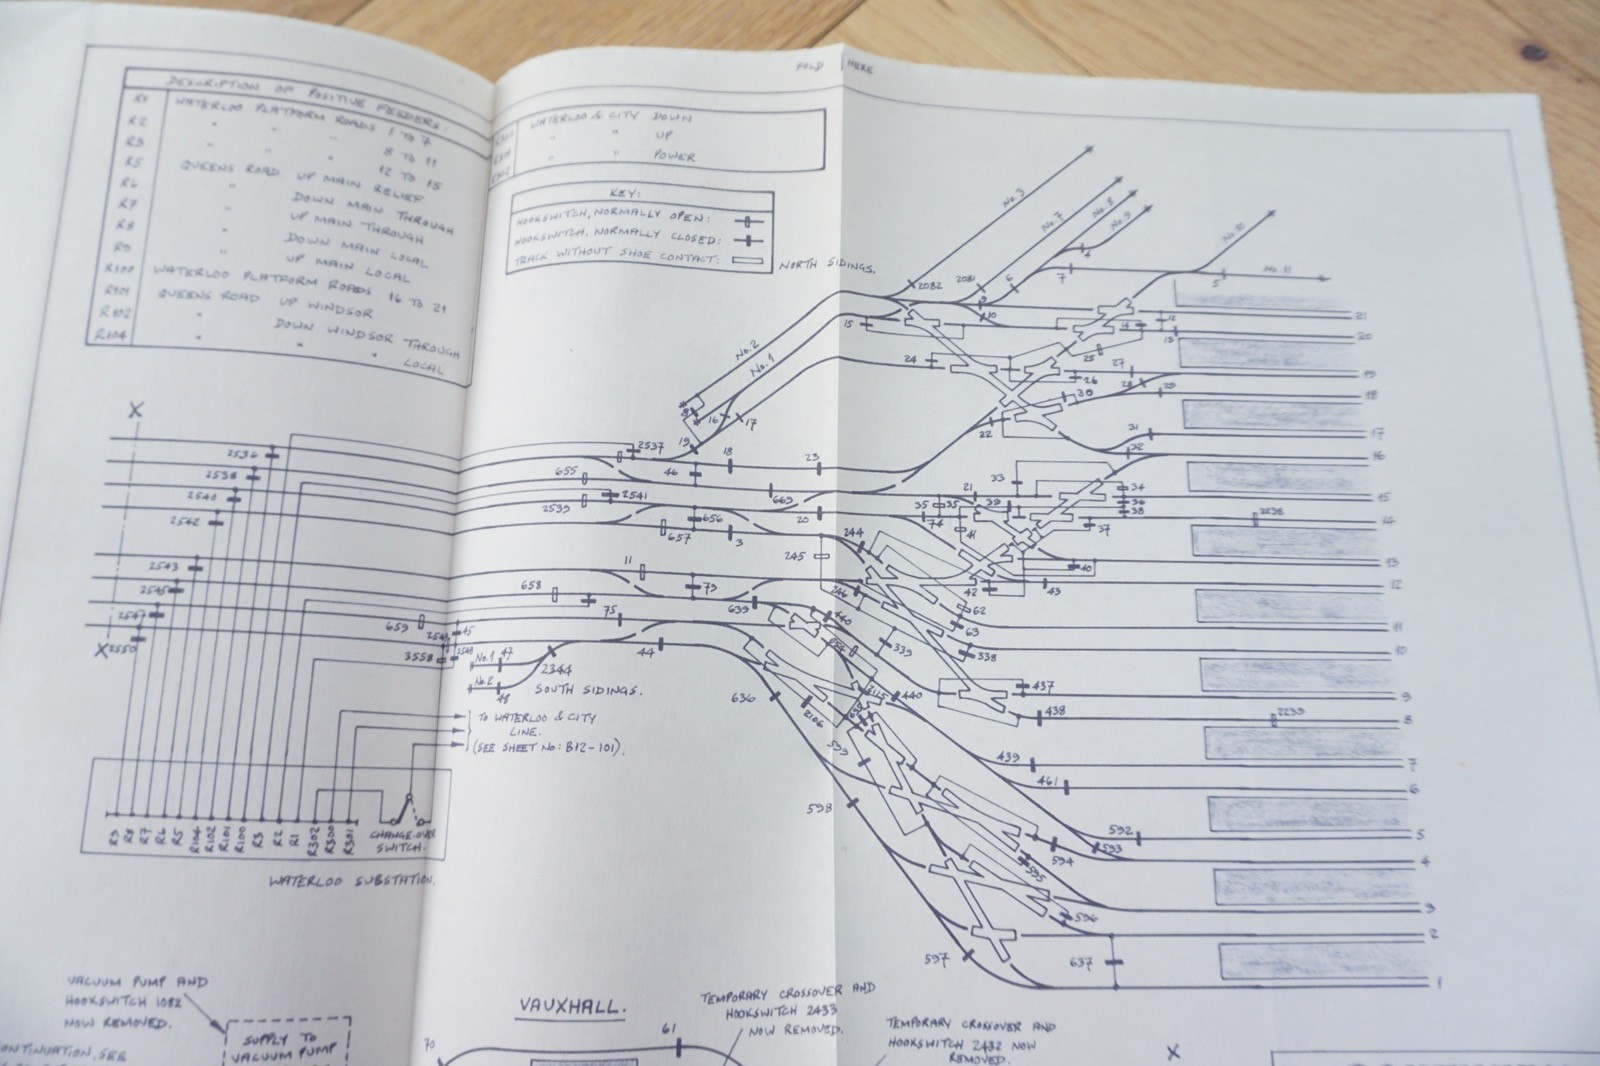 FOLD HERE
DESCRIPTION OF POSITIVE FEEDERS:
R1 WATERLOO PLATFORM ROADS 1 TO 7
R2 " " " 8 TO 11
R3 " " " 12 TO 15
R5 QUEENS ROAD UP MAIN RELIEF
R6 " DOWN MAIN THROUGH
R7 " UP MAIN THROUGH
R8 " DOWN MAIN LOCAL
R9 " UP MAIN LOCAL
R100 WATERLOO PLATFORM ROADS 16 TO 21
R101 QUEENS ROAD UP WINDSOR
R102 " DOWN WINDSOR THROUGH
R104 " " " LOCAL
WATERLOO & CITY DOWN
" " UP
R302 " " POWER
KEY:
HOOKSWITCH, NORMALLY OPEN:
HOOKSWITCH, NORMALLY CLOSED:
TRACK WITHOUT SHOE CONTACT:
NORTH SIDINGS.
No.3
No.7
No.8
No.9
No.10
No.11
2082
2081
6
4
7
5
9
10
15
No.2
No.1
8
16
17
19
24
25
26
27
28
29
30
22
31
32
12
13
14
21
20
19
18
17
16
15
14
13
12
11
10
9
8
7
6
5
4
3
2
1
X
2536
2538
2540
2542
2543
2545
2547
2550
X
2537
655
2541
2539
46
18
23
669
656
657
3
20
21
33
34
35
36
38
39
37
74
41
40
42
43
2238
244
245
246
11
658
73
639
75
659
45
3558
No.1 47
No.2
48
2344
44
SOUTH SIDINGS.
62
63
339
338
437
438
2239
440
439
461
636
2106
599
598
592
593
594
595
596
597
637
TO WATERLOO & CITY
LINE.
(SEE SHEET No: B12-101).
R9
R8
R7
R6
R5
R104
R102
R101
R100
R3
R2
R1
R302
R300
R301
CHANGE-OVER
SWITCH.
WATERLOO SUBSTATION.
VACUUM PUMP AND
HOOKSWITCH 1082
NOW REMOVED.
SUPPLY TO
VACUUM PUMP
SEE
VAUXHALL.
70
61
TEMPORARY CROSSOVER AND
HOOKSWITCH 2433
NOW REMOVED.
TEMPORARY CROSSOVER AND
HOOKSWITCH 2432 NOW
REMOVED.
X